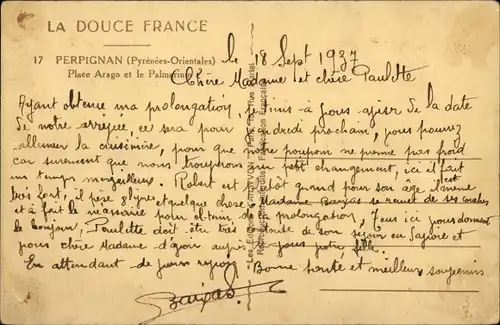 LA DOUCE FRANCE
17 PERPIGNAN (Pyrénées-Orientales)
Place Arago et le Palmarium
le 18 Sept 1937
Chère Madame et chère Paulette
Ayant obtenue ma prolongation, je viens à vous avisr de la date
de notre arrivée, ce sera pour vendredi prochain, vous pouvez
allumer la cuisinière, pour que notre poupon ne prenne pas froid
car surement que nous trouverons un petit changement, ici il fait
un temps merveilleux. Robert est plutôt grand pour son âge il mène est
très fort, il pèse 8 lives et quelque chose. Madame Barjas se remet de ses couches
et à fait le nécessaire pour obtenir de la prolongation, Tous ici vous donnent
le bonjour, Paulette doit être très de son séjour en
vous chère Madame d'avoir auprès de vous votre fille.
En attendant de vous revoir Bonne santé et meilleurs souvenirs